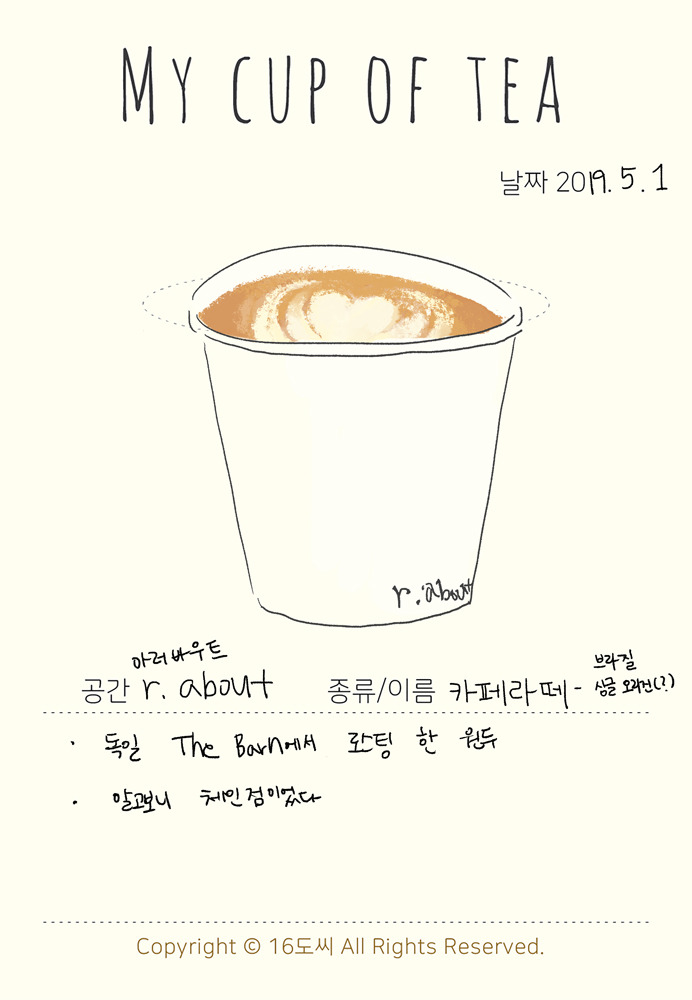 MY CUP OF TEA
날짜 2019. 5. 1
r. about
아러바우트
공간 r. about
종류/이름 카페라떼 -
브라질
싱글 오리진(?)
· 독일 The Barn에서 로스팅 한 원두
· 알고보니 체인점이었다
Copyright © 16도씨 All Rights Reserved.